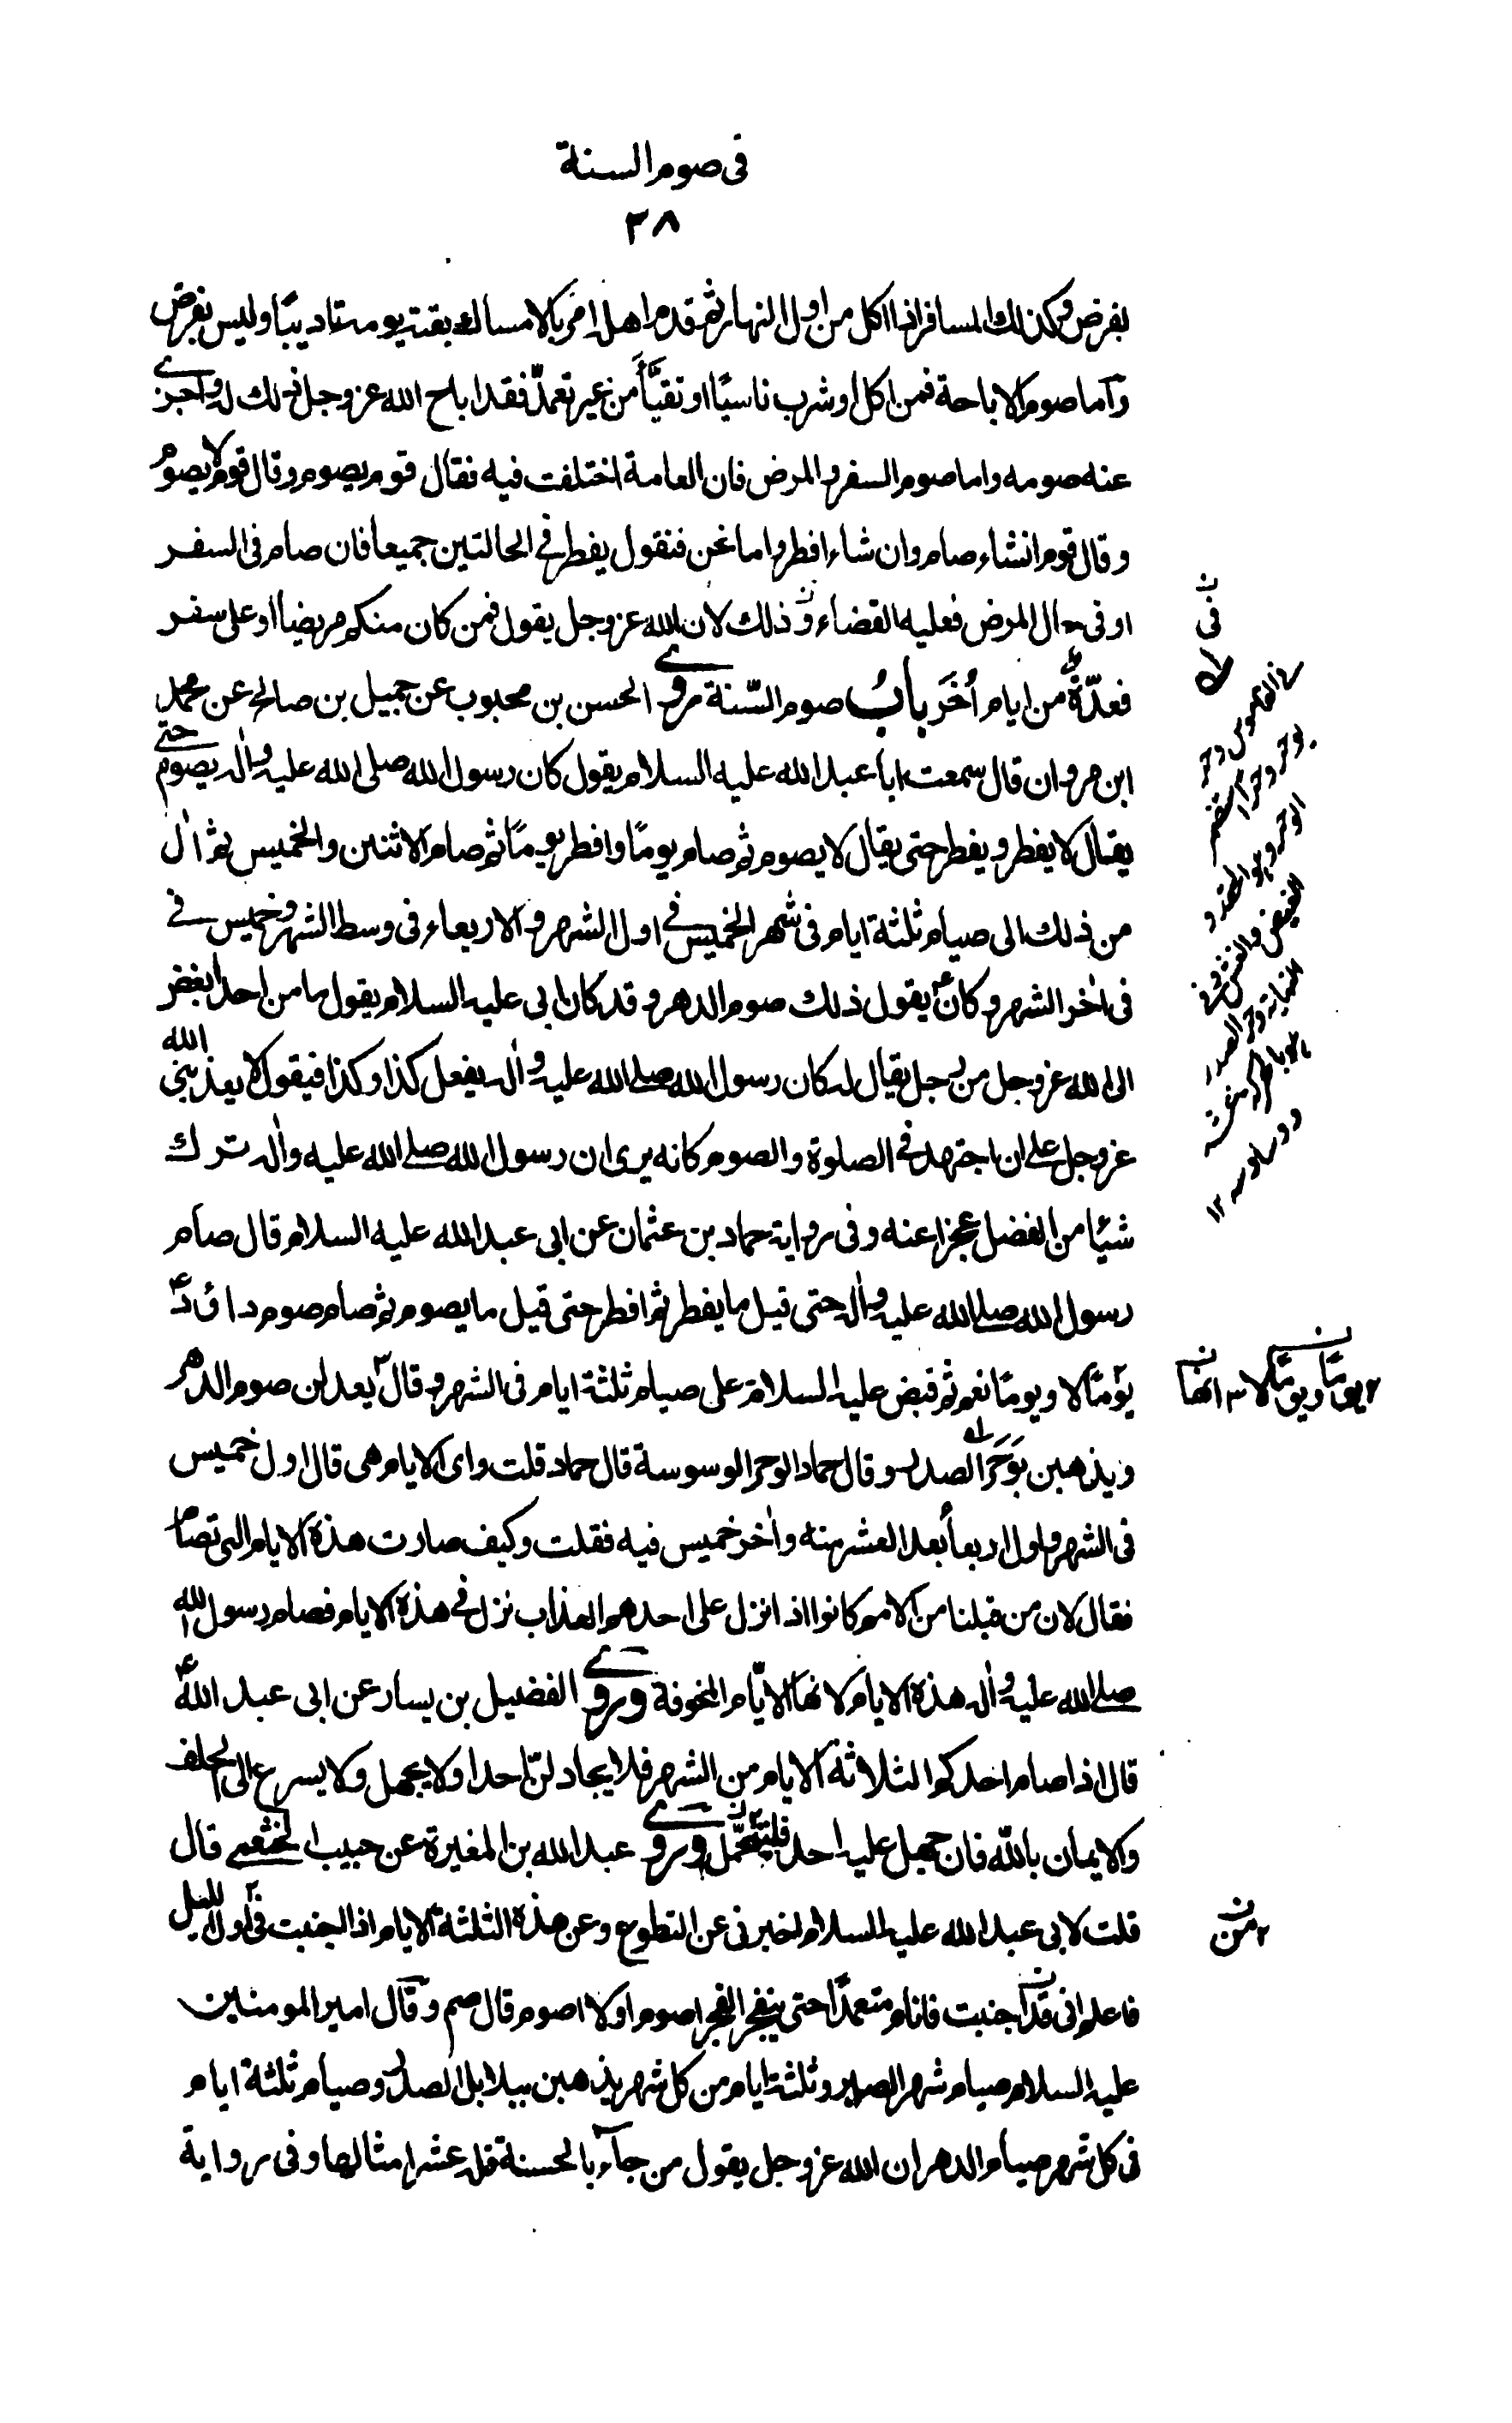 فى صوم السنة
٣٨
بفرض وكذلك المسافر اذا اكل من اول النهار ثم قدم اهله امر بالامساك بقية يومه تاديبًا وليس بفرض
وآما صوم الاباحة فمن اكل او شرب ناسيًا او تقيّأ من غير تعمّد فقد اباح الله عز وجل ذلك له واجزى
عنه صومه واما صوم السفر والمرض فان العامة اختلفت فيه فقال قوم يصوم وقال قوم لا يصوم
وقال قوم انشاء صام وان شاء افطر واما نحن فنقول يفطر فى الحالتين جميعا فان صام فى السفر
او فى حال المرض فعليه القضاء وذلك لان الله عز وجل يقول فمن كان منكم مريضا او على سفر
فعدّةٌ من ايام اُخَر بابُ صوم السّنة روى الحسن بن محبوب عن جميل بن صالح عن محمد
ابن مروان قال سمعت ابا عبد الله عليه السلام يقول كان رسول الله صلى الله عليه واٰله يصوم حتى
يقال لا يفطر ويفطر حتى يقال لا يصوم ثم صام يومًا وافطر يومًا ثم صام الاثنين والخميس ثم اٰل
من ذلك الى صيام ثلثة ايام فى شهر الخميس فى اول الشهر والاربعاء فى وسط الشهر وخميس فى
فى اٰخر الشهر وكانؑ يقول ذلك صوم الدهر وقد كان ابى عليه السلام يقول ما من احد ابغض
الى الله عز وجل من رجل يقال له كان رسول الله صلى الله عليه واٰله يفعل كذا وكذا فيقول لا يعذبنى الله
عز وجل على ان اجتهد فى الصلوة والصوم كانه يرى ان رسول الله صلى الله عليه واٰله ترك
شيًا من الفضل عجزا عنه وفى رواية حماد بن عثمان عن ابى عبد الله عليه السلام قال صام
رسول الله صلى الله عليه واٰله حتى قيل ما يفطر ثم افطر حتى قيل ما يصوم ثم صام صوم داؤدؑ
يومًا لا ويومًا نعم ثم قبض عليه السلام على صيام ثلثة ايام فى الشهر وقال يعدلن صوم الدهر
ويذهبن بوَحَرَ الصدر وقال حماد الوحر الوسوسة قال حماد قلت واى الايام هى قال اول خميس
فى الشهر واول اربعاء بعد العشر منه واٰخر خميس فيه فقلت وكيف صارت هذه الايام التى تصام
فقال لان من قبلنا من الامم كانوا اذا نزل على احدهم العذاب نزل فى هذه الايام فصام رسول الله
صلى الله عليه واٰله هذه الايام لانها الايّام المخوفة وروى الفضيل بن يسار عن ابى عبد اللهؑ
قال اذا صام احدكم الثلاثة الايام من الشهر فلا يجادلنّ احدا ولا يجهل ولا يسرع الى الحلف
والايمان بالله فان جهل عليه احد فليتحمّل وروى عبد الله بن المغيرة عن حبيب الخثعمى قال
قلت لابى عبد الله عليه السلام اخبرنى عن التطوع وعن هذه الثلثة الايام اذا اجنبت فى اول الليل
فاعلم انى قد اجنبت فانام متعمدًا حتى ينفجر الفجر اصوم او لا اصوم قال صم وقال امير المومنين
عليه السلام صيام شهر الصبر وثلثة ايام من كل شهر يذهبن ببلابل الصدر وصيام ثلثة ايام
فى كل شهر صيام الدهر ان الله عز وجل يقول من جآء بالحسنة فله عشر امثالها وفى رواية
فى
يومًا ويومًا لا
من